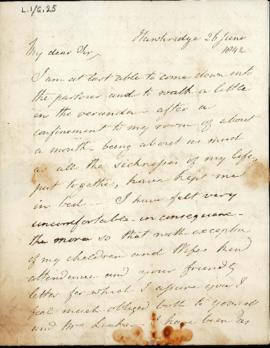 L.1/G.25
Hawkridge 26 June
1842
My dear Sir,
I am at last able to come down into
the parlour and to walk a little
in the verandah after a
confinement to my room of about
a month being about as much
as all the sicknesses of my life,
put together, have kept me
in bed — I have felt very
uncomfortable in consequence
the more so that with exception
of my children and Wifes kind
attendance and your friendly
letter for which I assure you I
feel much obliged both to yourself
and Mrs I have been